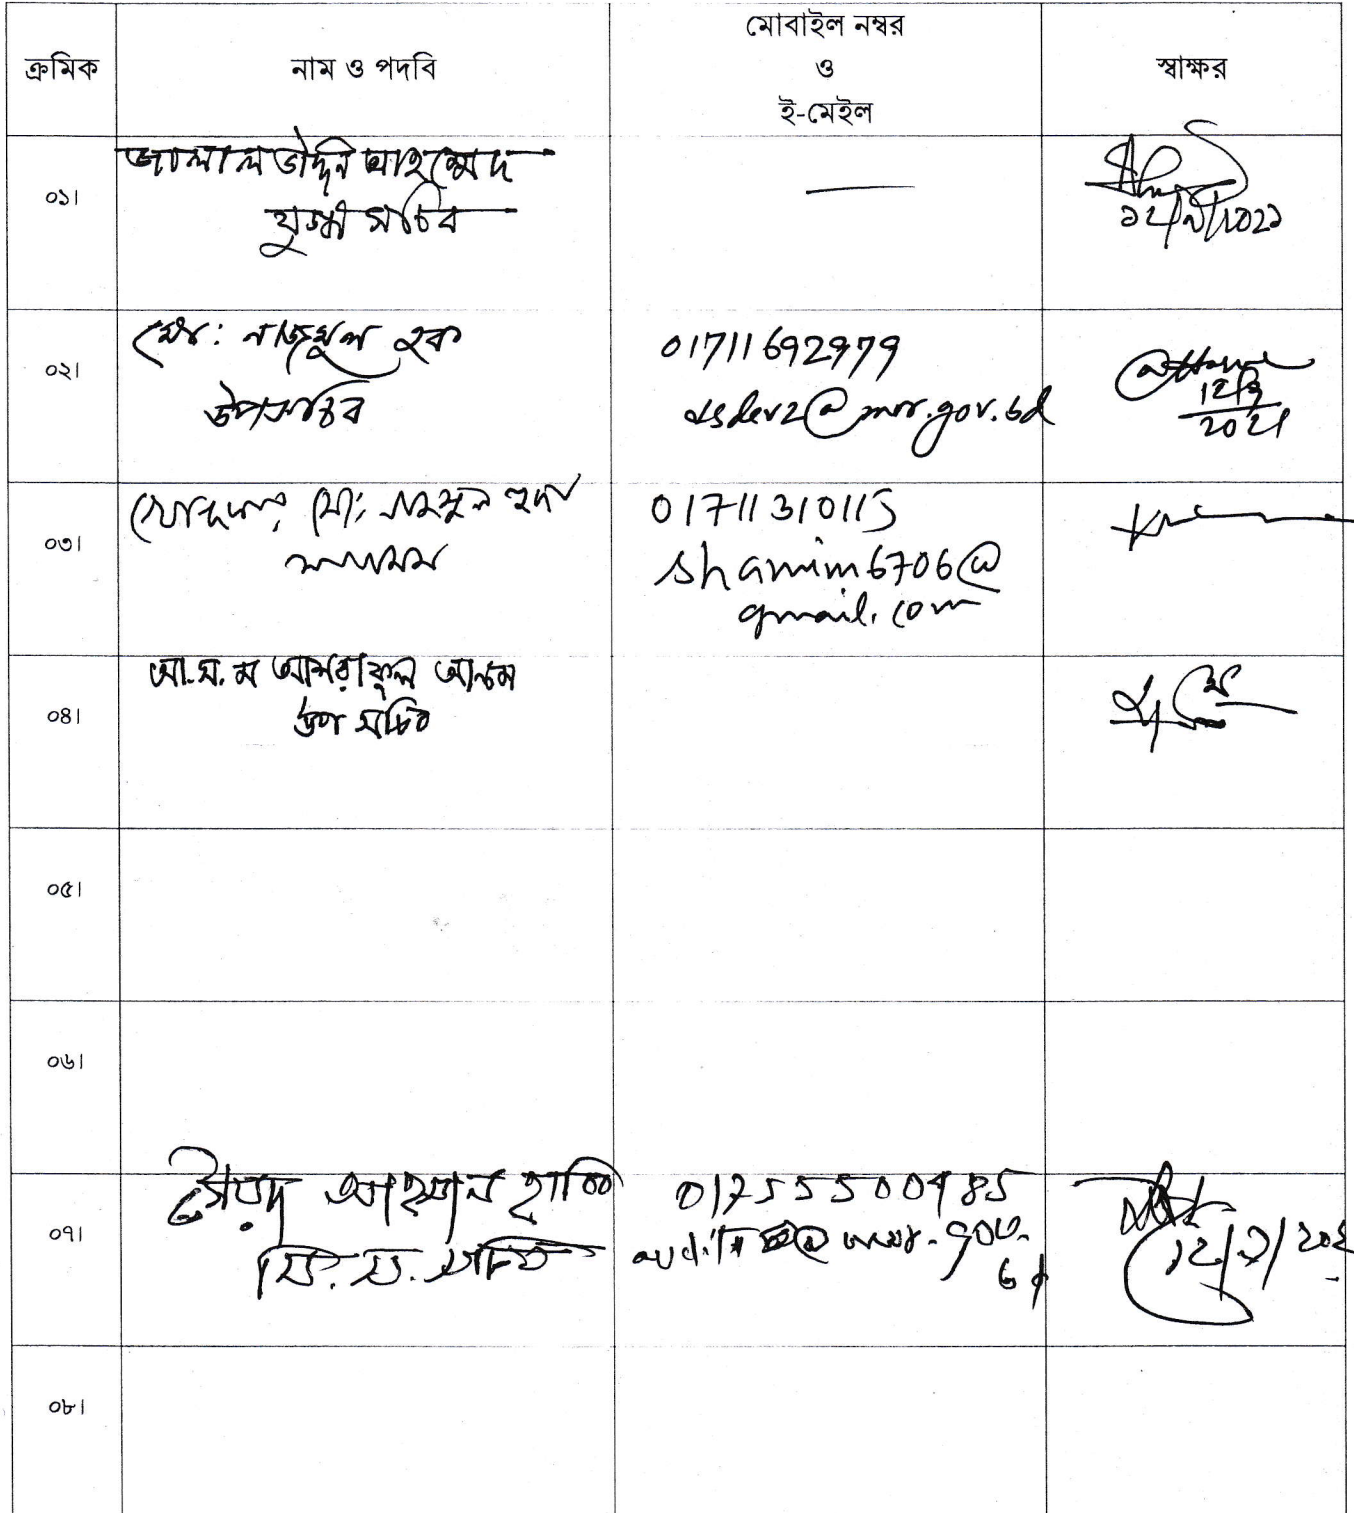 ক্রমিক নাম ও পদবি মোবাইল নম্বর ও ই-মেইল স্বাক্ষর
০১। জালাল উদ্দিন আহম্মেদ
যুগ্ম সচিব
১২/৯/২০২১
০২। মো: নাজমুল হক 01711692979
উপসচিব dsdev2@mor.gov.bd
12/9
2021
০৩। মো: হুদা 01711310115
shamim6706@
gmail.com
০৪। আ.স.ম আশরাফুল আলম
উপ সচিব
০৫।
০৬।
০৭। সৈয়দ আহসান হাবিব 01755500485
সি. স. সচিব
১২/৯/২০২
০৮।